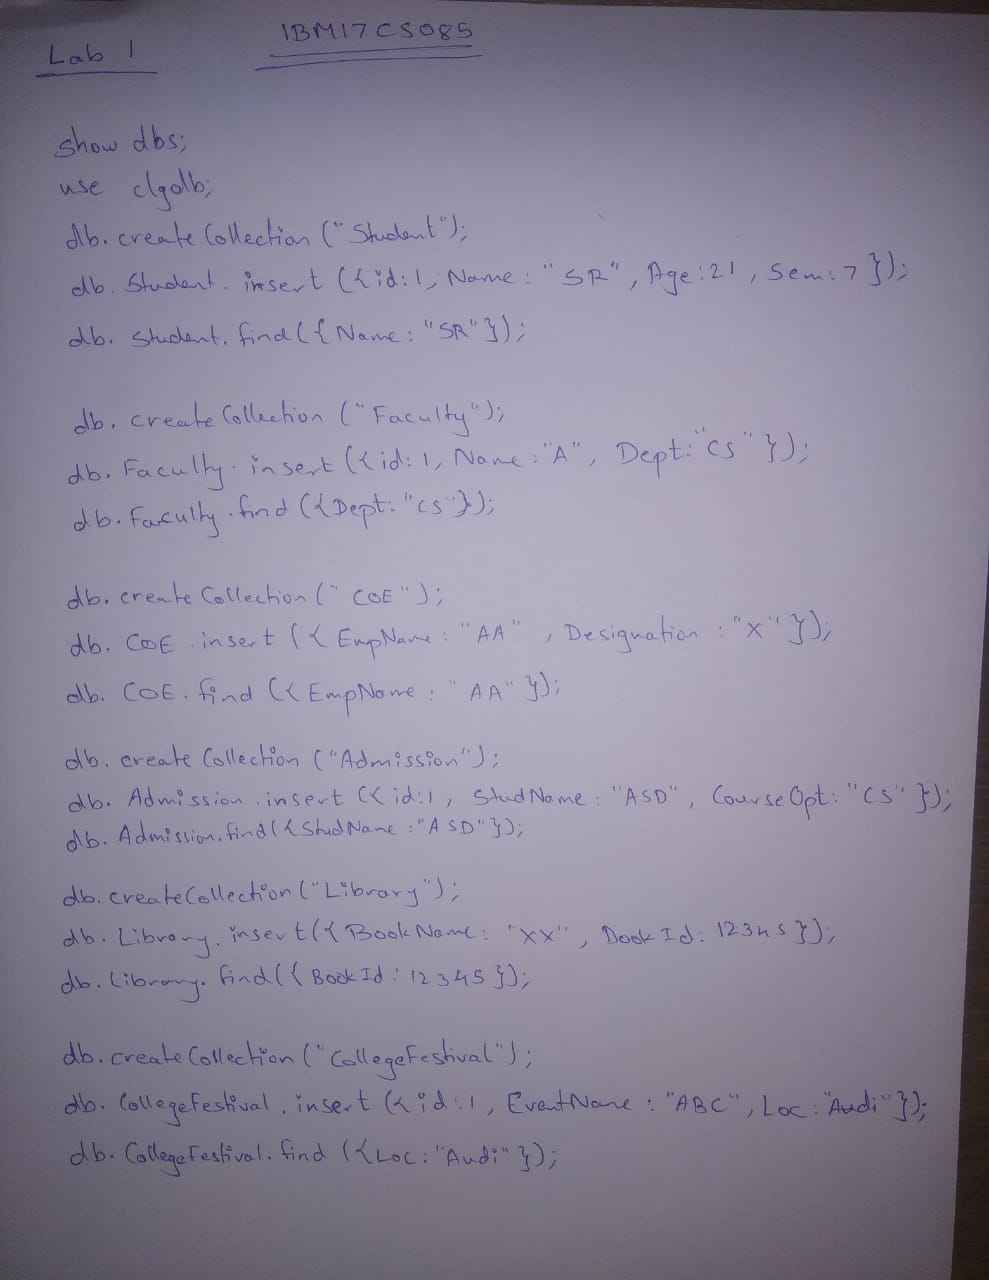 Lab 1
1BM17CS085
show dbs;
use clgdb;
db.createCollection("Student");
db.Student.insert({id:1, Name: "SR", Age:21, Sem:7});
db.Student.find({Name: "SR"});
db.createCollection("Faculty");
db.Faculty.insert({id:1, Name: "A", Dept: "CS"});
db.Faculty.find({Dept: "CS"});
db.createCollection("COE");
db.COE.insert({EmpName: "AA", Designation: "X"});
db.COE.find({EmpName: "AA"});
db.createCollection("Admission");
db.Admission.insert({id:1, StudName: "ASD", CourseOpt: "CS"});
db.Admission.find({StudName: "ASD"});
db.createCollection("Library");
db.Library.insert({BookName: "XX", BookId: 12345});
db.Library.find({BookId: 12345});
db.createCollection("CollegeFestival");
db.CollegeFestival.insert({id:1, EventName: "ABC", Loc: "Audi"});
db.CollegeFestival.find({Loc: "Audi"});